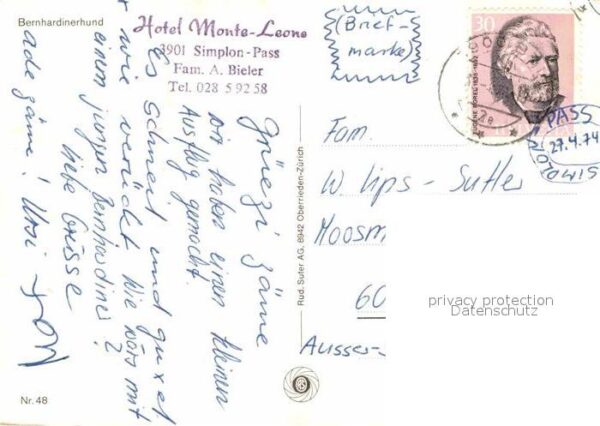 Bernhardinerhund
Hotel Monte-Leone
3901 Simplon-Pass
Fam. A. Bieler
Tel. 028 5 92 58
(Brief-
marke)
30
PASS
27.4.74
SIMPLON
Grüezi zäme
Wir haben einen kleinen
Ausflug gemacht.
Es schneit und guxet
wie verückt. Wie wärs mit
einem jungen Bernhardiner?
Liebe Grüsse
ade zäme! Ursi
Rud. Suter AG, 8942 Oberrieden-Zürich
Fam.
W Lips - Sutter
Moosm
60
Ausser-
privacy protection
Datenschutz
Nr. 48